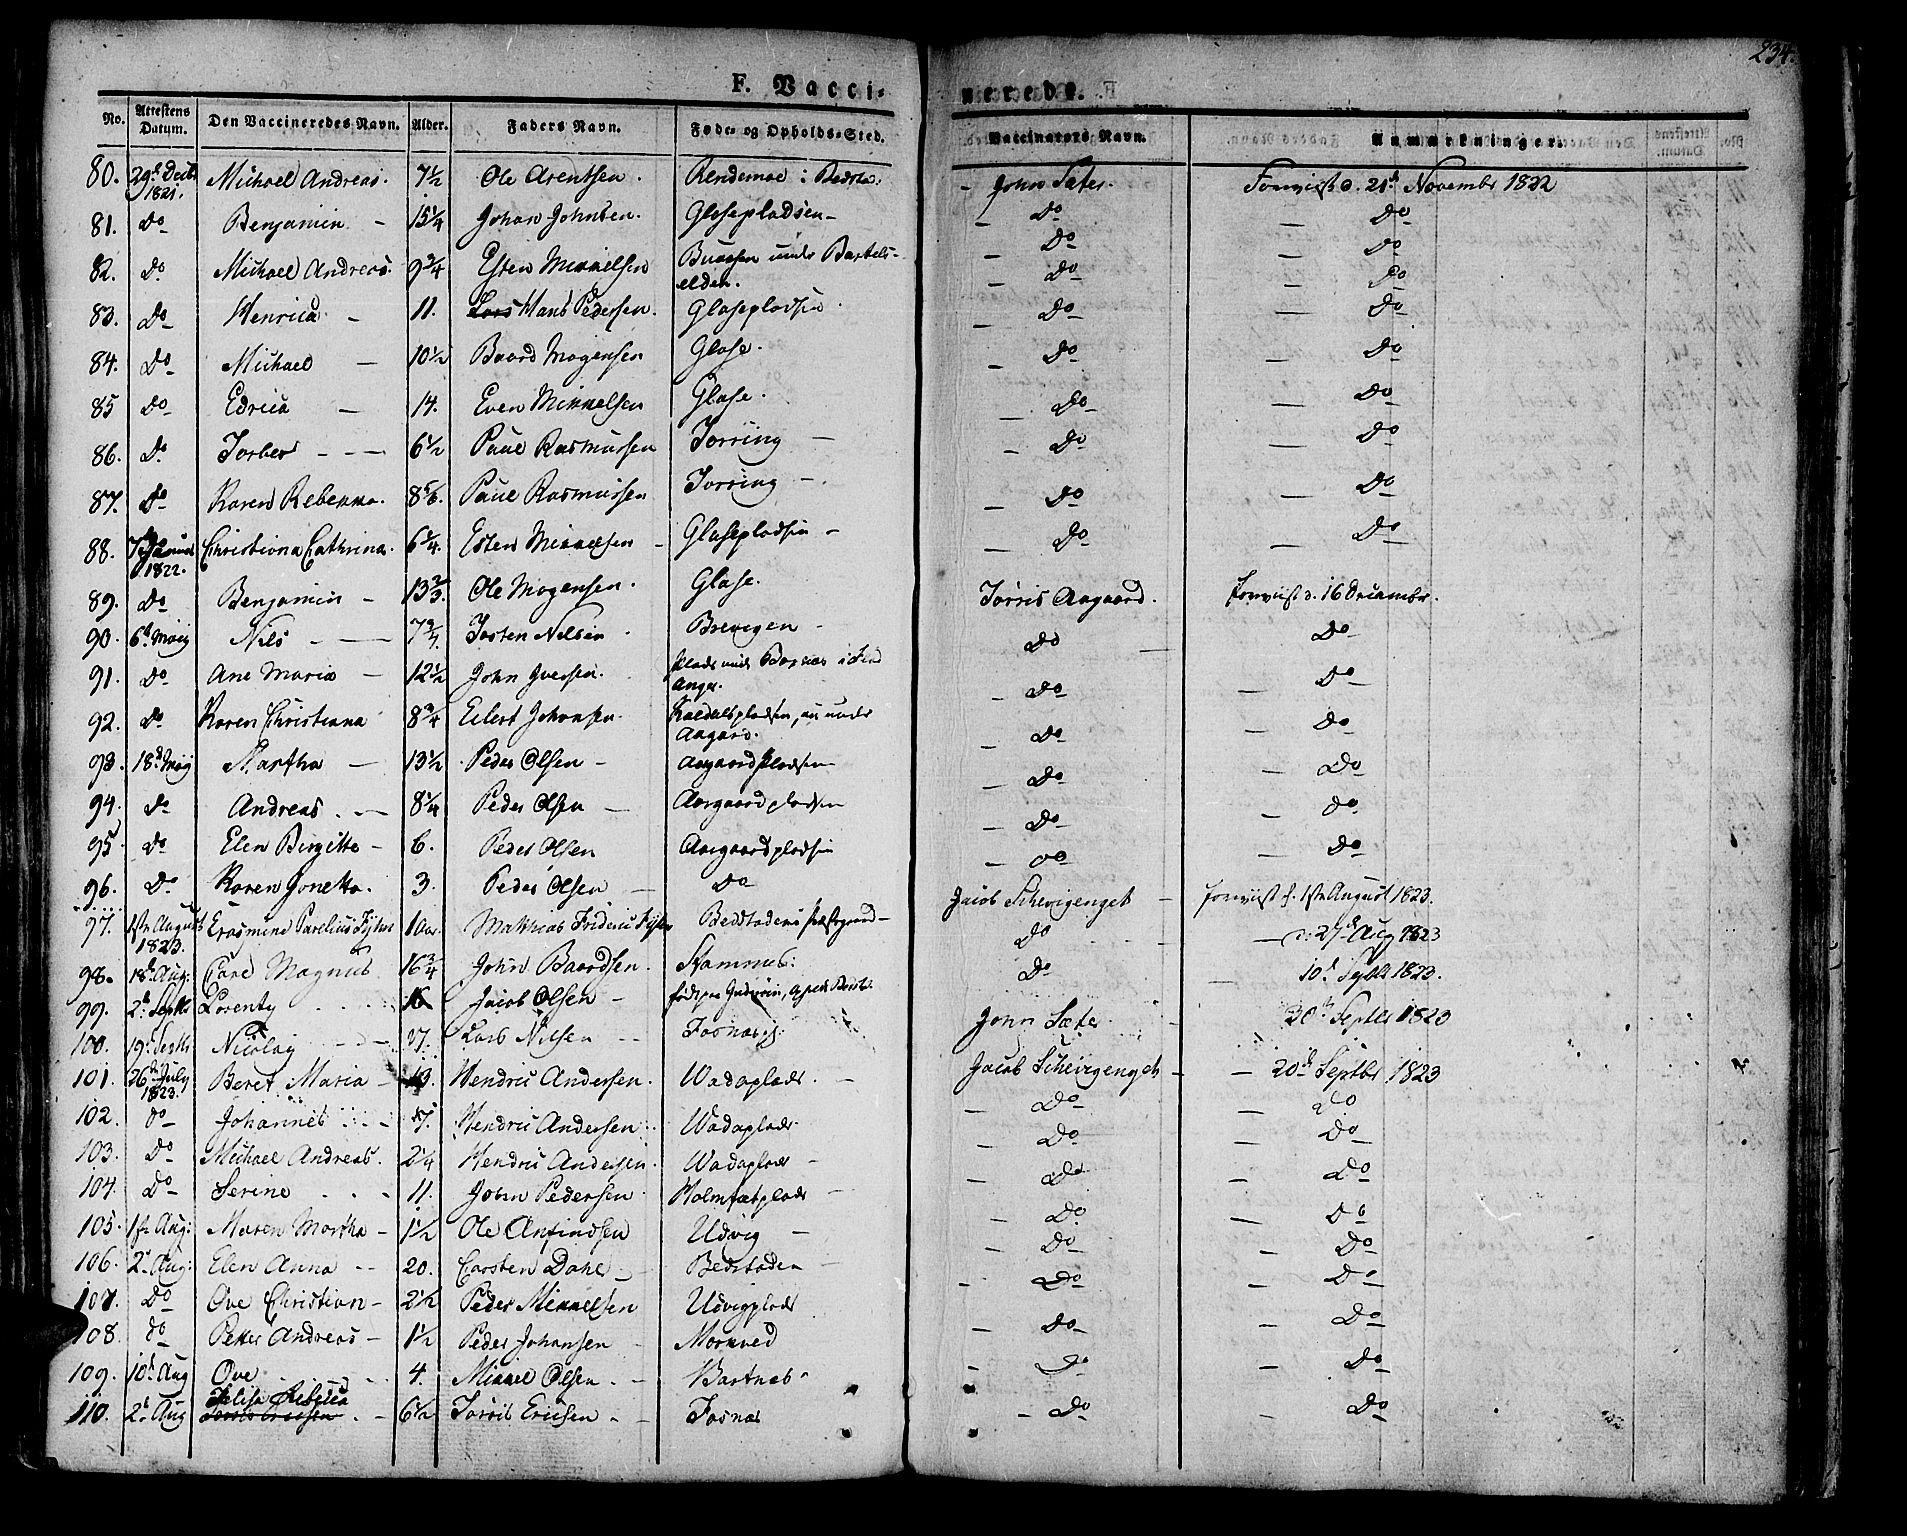 234.
F. Vaccinerede.
No. | Attestens Datum. | Den Vaccineredes Navn. | Alder. | Faders Navn. | Føde- og Opholds-Sted. | Vaccinators Navn. | Anmærkninger.
80. | 29d Decbr 1821. | Michael Andreas. | 7 1/2 | Ole Arentsen. | i Bedsta: | John Sæter. | Forevist d. 21d November 1822
81. | Do | Benjamin | 15 1/4 | Johan Johnsen. | Glasepladsen | Do | Do
82. | Do | Michael Andreas. | 9 3/4 | Esten Mikkelsen | under Bartels-
elden. | Do | Do
83. | Do | Henrica | 11. | Hans Pedersen. | Glasepladsen | Do | Do
84. | Do | Michael | 10 1/2 | Baard Mogensen | Glase. | Do | Do
85 | Do | Edrica | 14. | Even Mikkelsen | Glase. | Do | Do
86. | Do | Torber | 6 1/2 | Paul Rasmussen | Torring | Do | Do
87. | Do | Karen Rebekka. | 8 5/6. | Paul Rasmussen | Torring | Do | Do
88. | 7de Januar 1822. | Christiana Cathrina. | 6 1/4. | Esten Mikkelsen | Glasepladsen | Do | Do
89. | Do | Benjamin | 13 2/3. | Ole Mogensen. | Glase. | Torris Aagaard. | Forevist d. 16 December.
90. | 6d Maij | Nils | 7 | Josten Nilsen | Brevigen | Do | Do
91. | Do | Ane Maria | 12 1/2 | John Iversen. | Plads under
Anger. | Do | Do
92. | Do | Karen Christiana | 8 3/4 | Eilert Johansen. | under
Aagard. | Do | Do
93. | 18d Maij | Martha | 13 1/2 | Peder Olsen | Aargaardpladsen | Do | Do
94. | Do | Andreas. | 8 1/4 | Peder Olsen | Aargaardpladsen | Do | Do
95 | Do | Elen Birgitte | 6. | Peder Olsen | Aargaardpladsen | Do | Do
96. | Do | Karen Jonetta. | 3. | Peder Olsen | Do
97. | 1ste August 1823. | Erasmine Parelius | 1 Aar. | Matthias Frideric | Bedstadens Præstegaard | Jacob Schevigenget | Forevist d. 1ste August 1823.
98. | 18d Aug: | Carl Magnus | 16 3/4 | John Baardsen. | Stammes: | Do | d: 27d Aug 1823
99. | 2d Septbr | Lorents | 16 | Jacob Olsen | født paa | Do | 10d Septbr 1823.
100. | 19d Septbr | Nicolay | 7. | Lars Nilsen | Fosnæs | John Sæter | 30te Septbr 1823
101. | 26d July 1823. | Beret Maria | 13. | Hendric Andersen. | Wadaplads. | Jacob Schevigenget | 20d Septbr 1823
102. | do | Johannes | 7. | Hendric Andersen | Wadaplads. | Do | Do
103. | Do | Michael Andreas. | 2 1/4 | Hendric Andersen. | Wadaplads | Do | Do
104. | Do | Serine | 11. | John Pedersen. | Holmsetplads | Do | Do
105. | 1ste Aug: | Maren Martha | 1 1/2 | Ole Anfindsen | Udvig | Do | Do
106. | 2d Aug: | Elen Anna | 20. | Carsten Dahl | Bedstaden | Do | Do
107. | Do | Ove Christian | 2 1/2 | Peder Mikkelsen | Udvigplads | Do | Do
108. | do | Petter Andreas | 1 1/2 | Peder Johansen | Morkved | Do | Do
109. | 10d Aug | Ove | 4. | Mikkel Olsen. | Bartnes | Do | Do
110. | 2d Aug | Rebecca | 6 1/2 | Torris Ericsen | Fosnæs | Do | Do